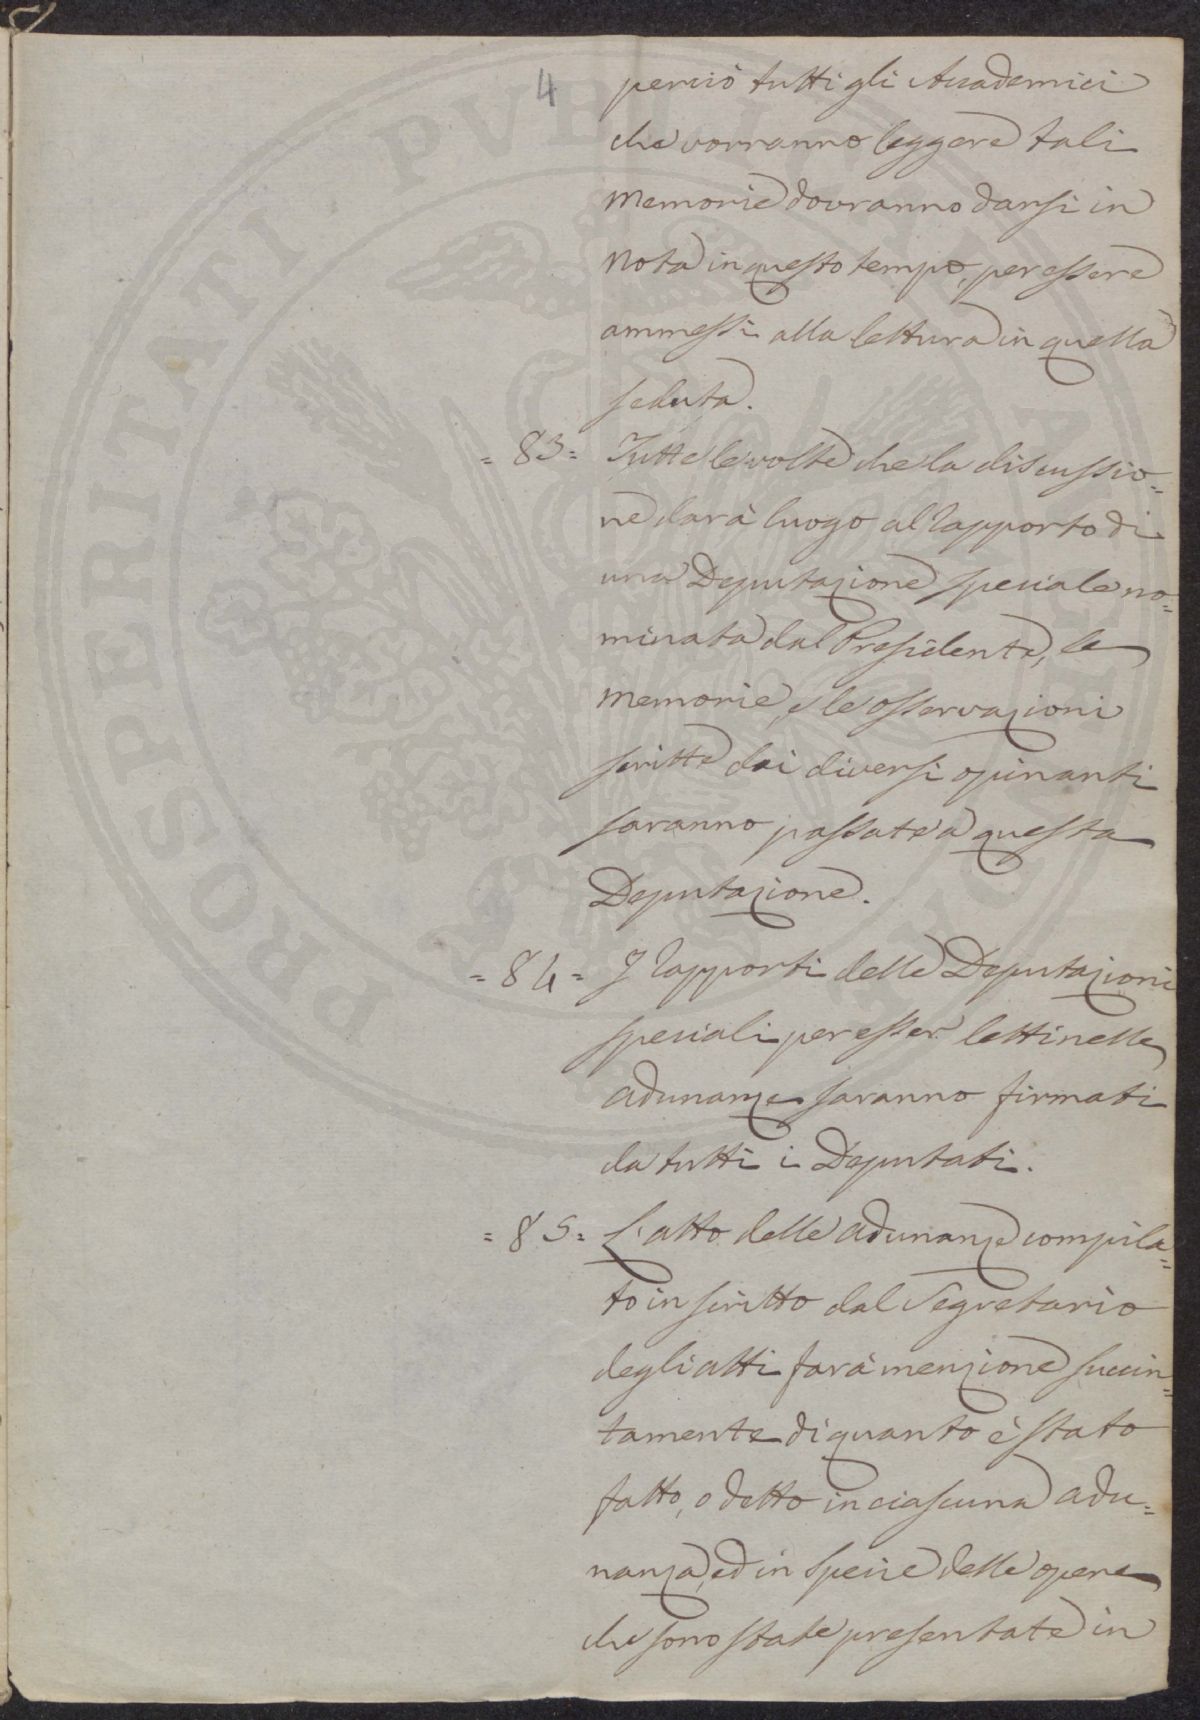 4
perciò tutti gli Accademici
che vorranno leggere tali
Memorie dovranno darsi in
Nota in questo tempo, per essere
ammessi alla lettura in quella
seduta.
= 83 = Tutte le volte che la discussio=
ne darà luogo al Rapporto di
una Deputazione speciale no=
minata dal Presidente, le
Memorie, e le osservazioni
scritte dai diversi opinanti
saranno passate a questa
Deputazione.
= 84 = I Rapporti delle Deputazioni
speciali per esser letti nelle
adunanze saranno firmati
da tutti i Deputati.
= 85 = L'atto delle adunanze compila=
to in scritto dal Segretario
degli atti farà menzione succin=
tamente di quanto è stato
fatto, o detto in ciascuna adu=
nanza, ed in specie delle opere
che sono state presentate in
PROSPERITATI PVBLICAE AVGENDAE